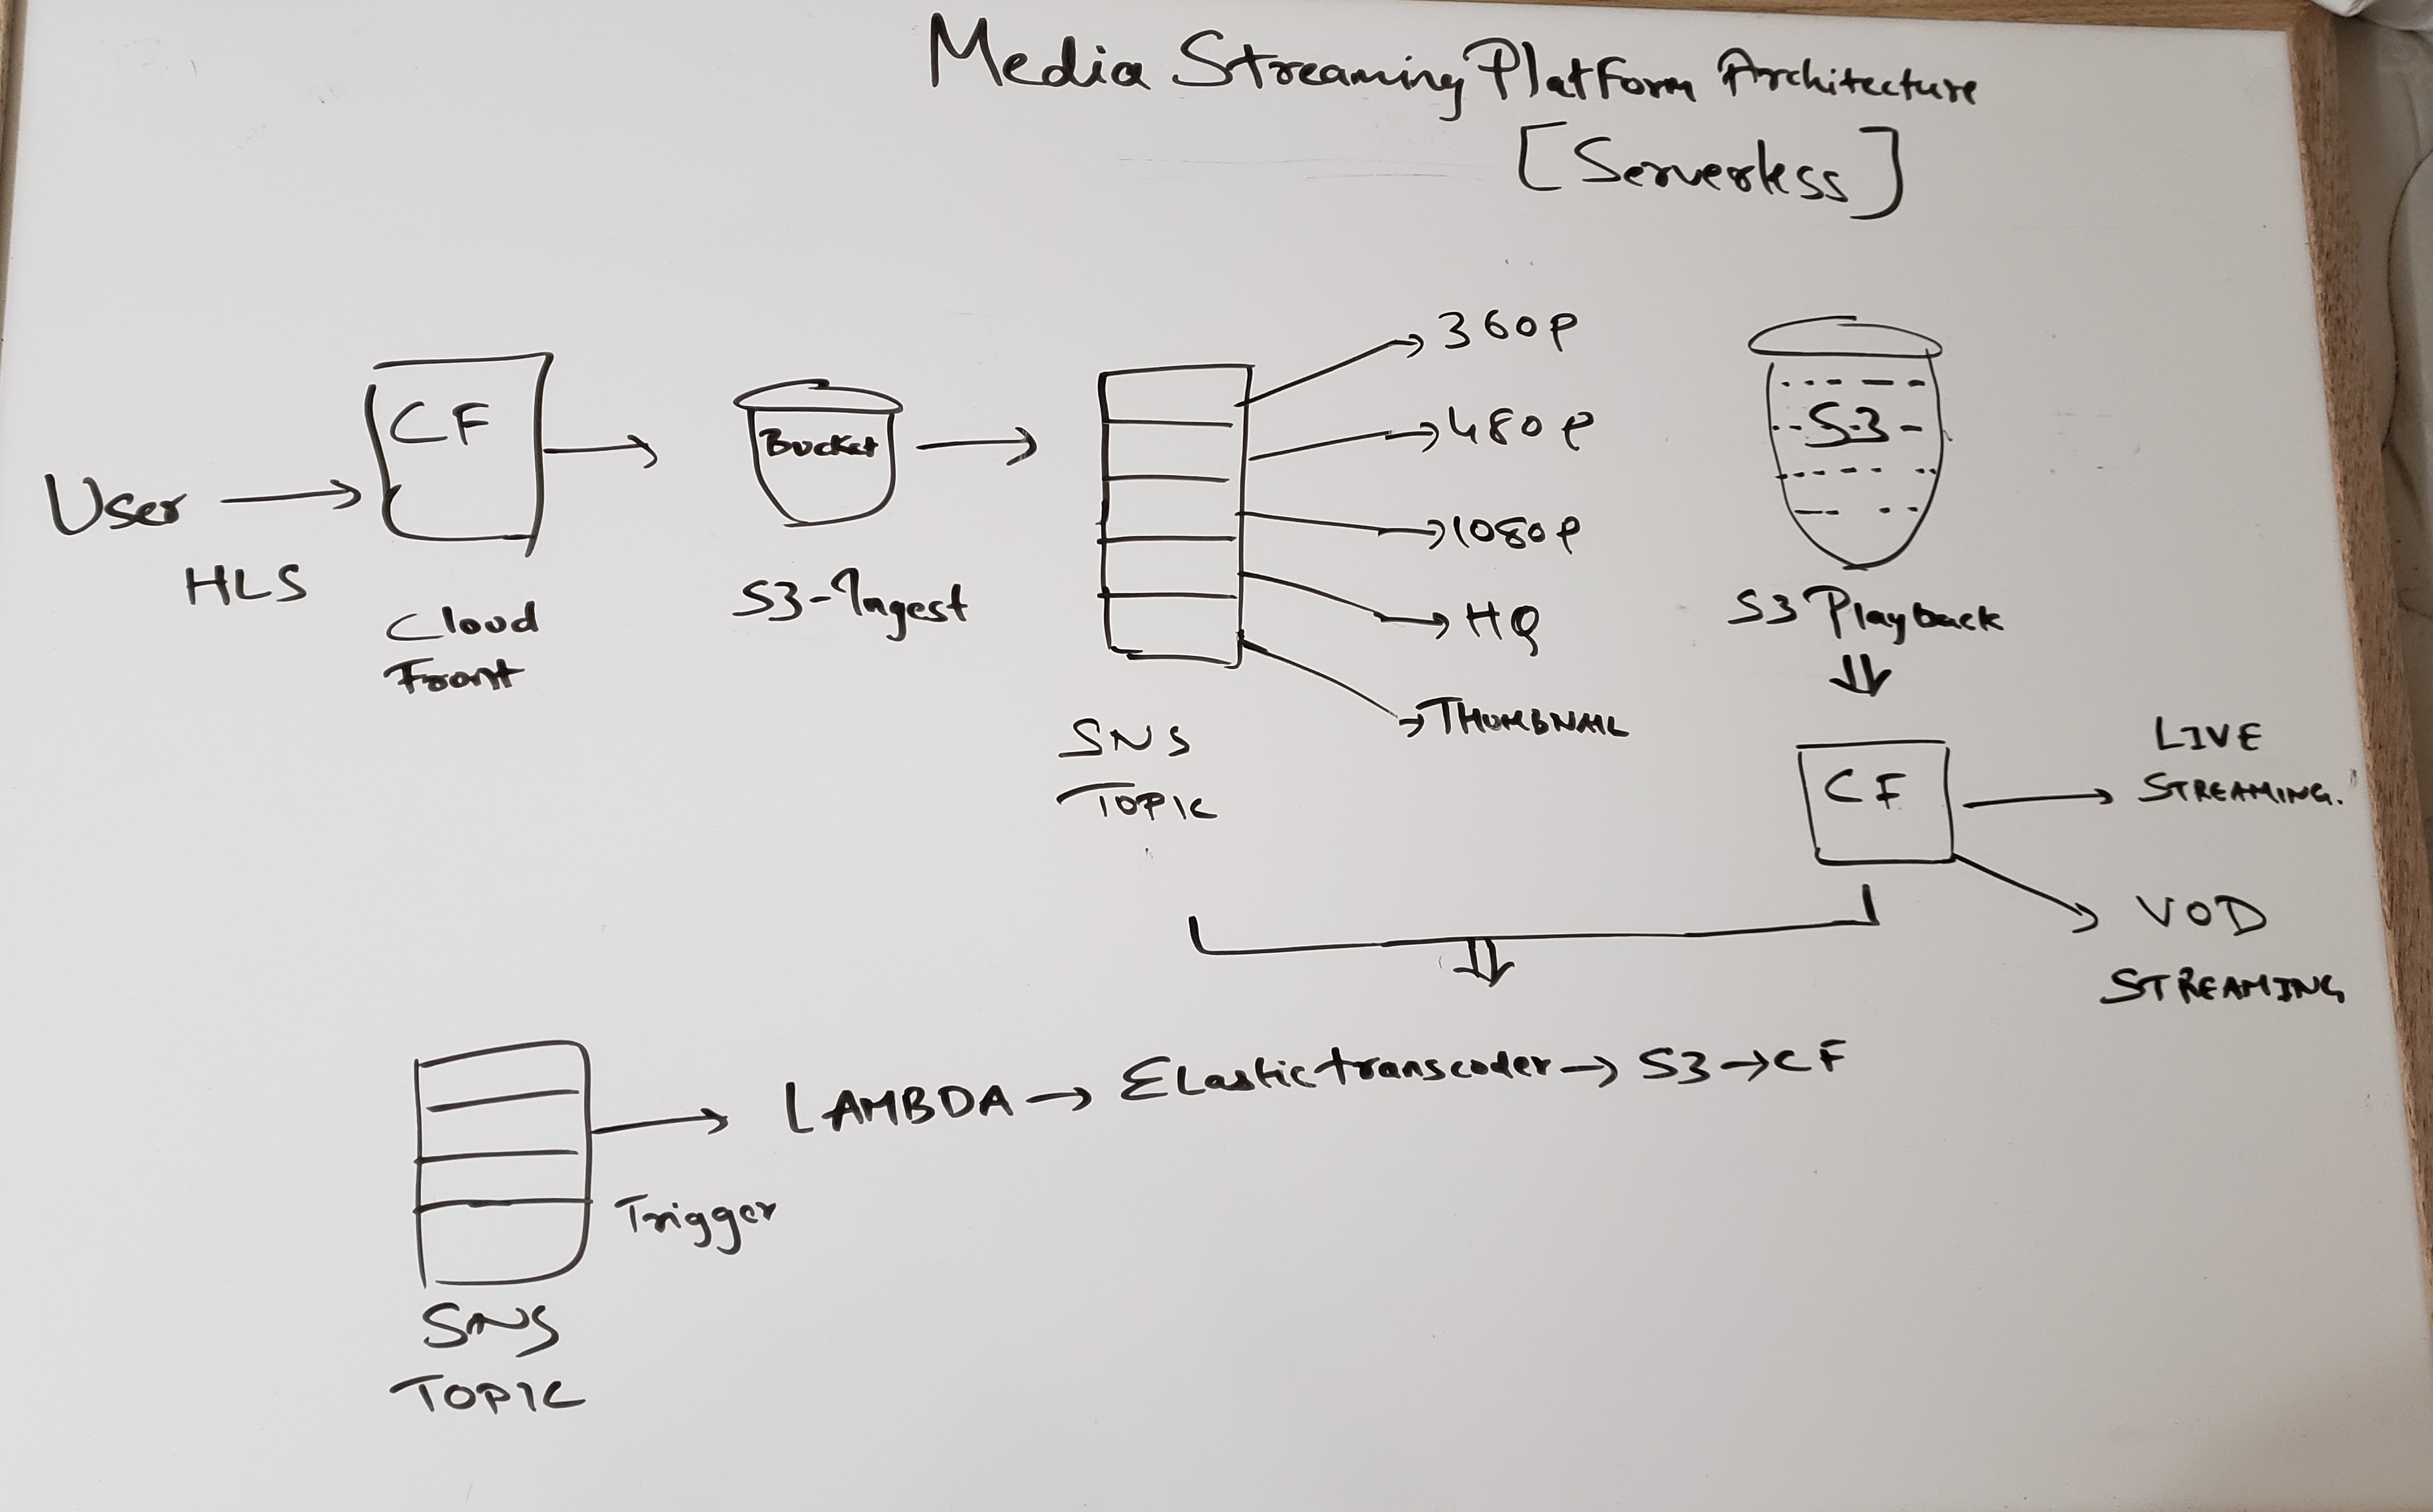 Media Streaming Platform Architecture
[Serverless]
User
HLS
CF
Cloud
Front
Bucket
S3-Ingest
SNS
TOPIC
360P
480P
1080P
HQ
THUMBNAIL
S3
S3 Playback
CF
LIVE
STREAMING.
VOD
STREAMING
SNS
TOPIC
Trigger
LAMBDA → Elastictranscoder → S3 → CF